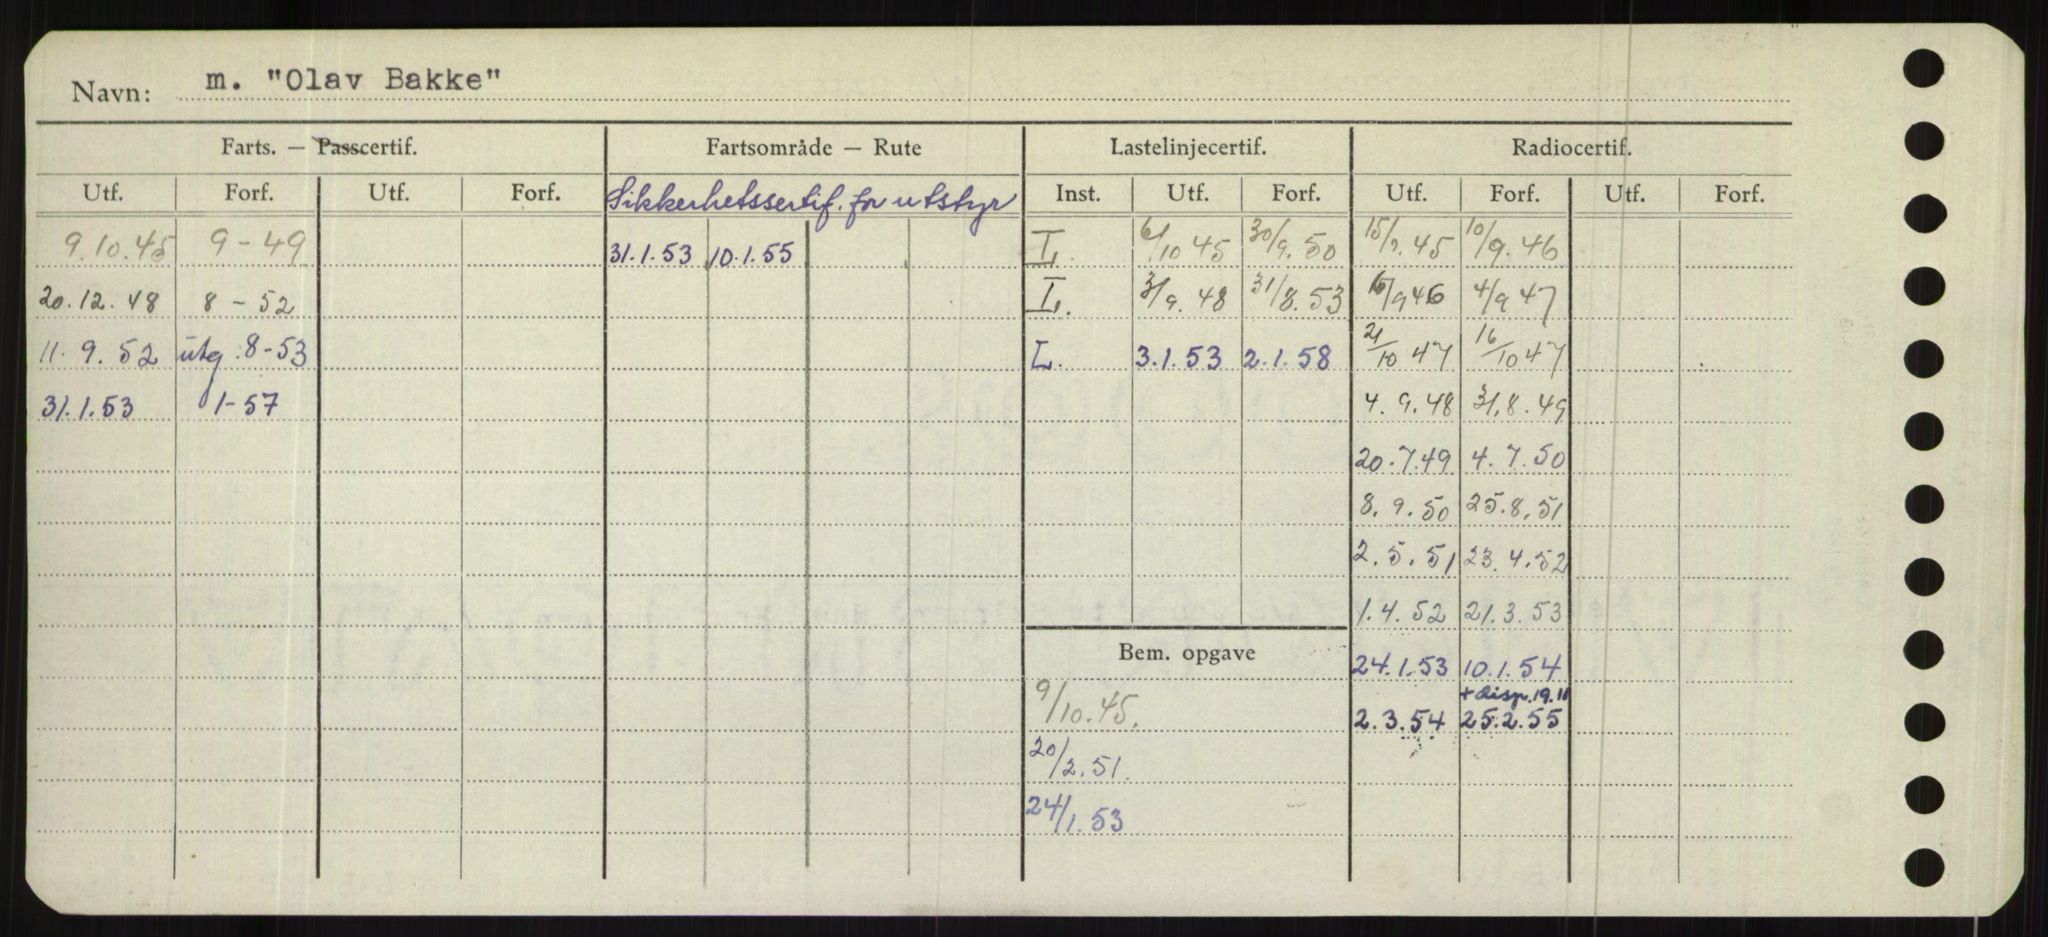 Navn: m. "Olav Bakke"
Farts. — Passcertif. Fartsområde — Rute Lastelinjecertif. Radiocertif.
Utf. Forf. Utf. Forf. Sikkerhetssertif. for utstyr Inst. Utf. Forf. Utf. Forf. Utf. Forf.
9.10.45 9-49 31.1.53 10.1.55 I. 6/10 45 30/9.50 15/9.45 10/9.46
20.12.48 8-52 I. 3/9.48 31/8.53 16/9 46 4/9 47
11.9.52 utg: 8-53 I. 3.1.53 2.1.58 21/10 47 16/10 47
31.1.53 1-57 4.9.48 31.8.49
20.7.49 4.7.50
8.9.50 25.8.51
2.5.51 23.4.52
1.4.52 21.3.53
Bem. opgave 24.1.53 10.1.54
+disp. 19.11
9/10.45. 2.3.54 25.2.55
20/2.51.
24/1.53